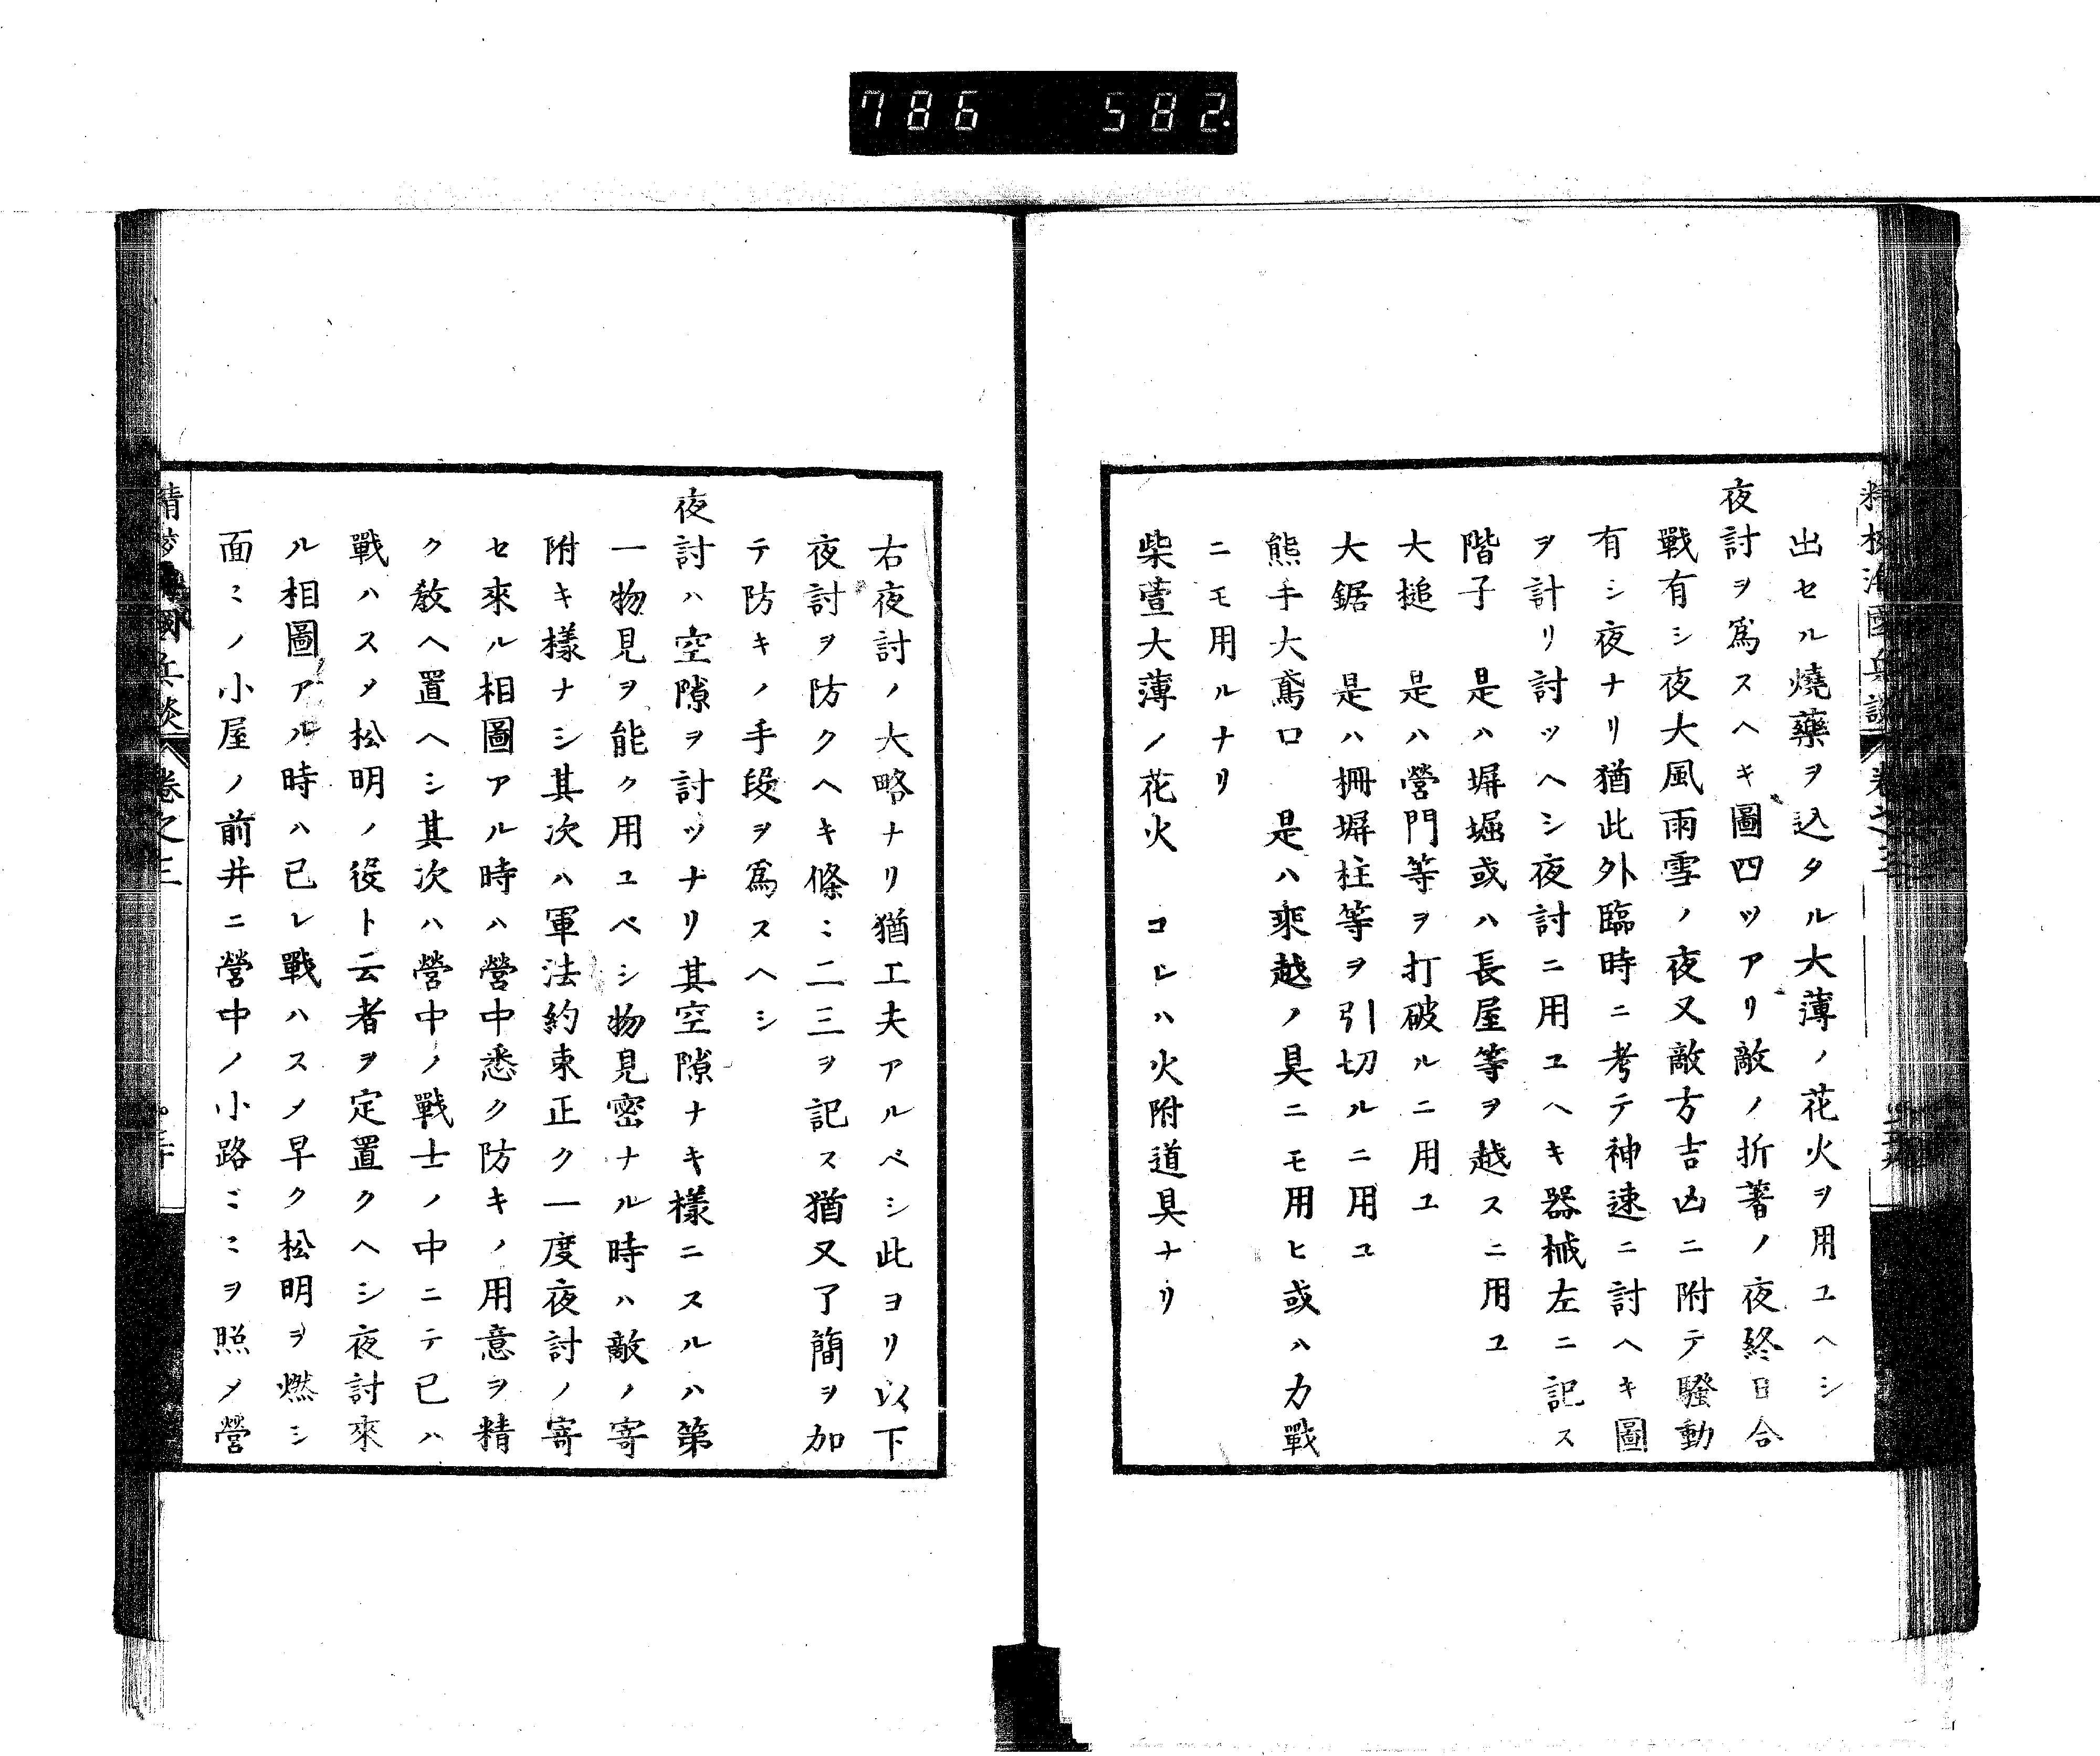 786 582.
出セル燒藥ヲ込タル大薄ノ花火ヲ用ユヘシ
夜討ヲ爲スヘキ圖四ツアリ敵ノ折著ノ夜終日合
戰有シ夜大風雨雪ノ夜又敵方吉凶ニ附テ騷動
有シ夜ナリ猶此外臨時ニ考テ神速ニ討ヘキ圖
ヲ計リ討ツヘシ夜討ニ用ユヘキ器械左ニ記ス
階子 是ハ塀堀或ハ長屋等ヲ越スニ用ユ
大槌 是ハ營門等ヲ打破ルニ用ユ
大鋸 是ハ柵塀柱等ヲ引切ルニ用ユ
熊手大鳶口 是ハ乘越ノ具ニモ用ヒ或ハ力戰
ニモ用ルナリ
柴萱大薄ノ花火 コレハ火附道具ナリ
右夜討ノ大略ナリ猶工夫アルベシ此ヨリ以下
夜討ヲ防クヘキ條〻二三ヲ記ス猶又了簡ヲ加
テ防キノ手段ヲ爲スヘシ
夜討ハ空隙ヲ討ツナリ其空隙ナキ樣ニスルハ第
一物見ヲ能ク用ユベシ物見密ナル時ハ敵ノ寄
附キ樣ナシ其次ハ軍法約束正ク一度夜討ノ寄
セ來ル相圖アル時ハ營中悉ク防キノ用意ヲ精
ク敎ヘ置ヘシ其次ハ營中ノ戰士ノ中ニテ已ハ
戰ハスメ松明ノ役ト云者ヲ定置クヘシ夜討來
ル相圖アル時ハ已レ戰ハスメ早ク松明ヲ燃シ
面〻ノ小屋ノ前井ニ營中ノ小路〴〵ヲ照メ營
卷之三